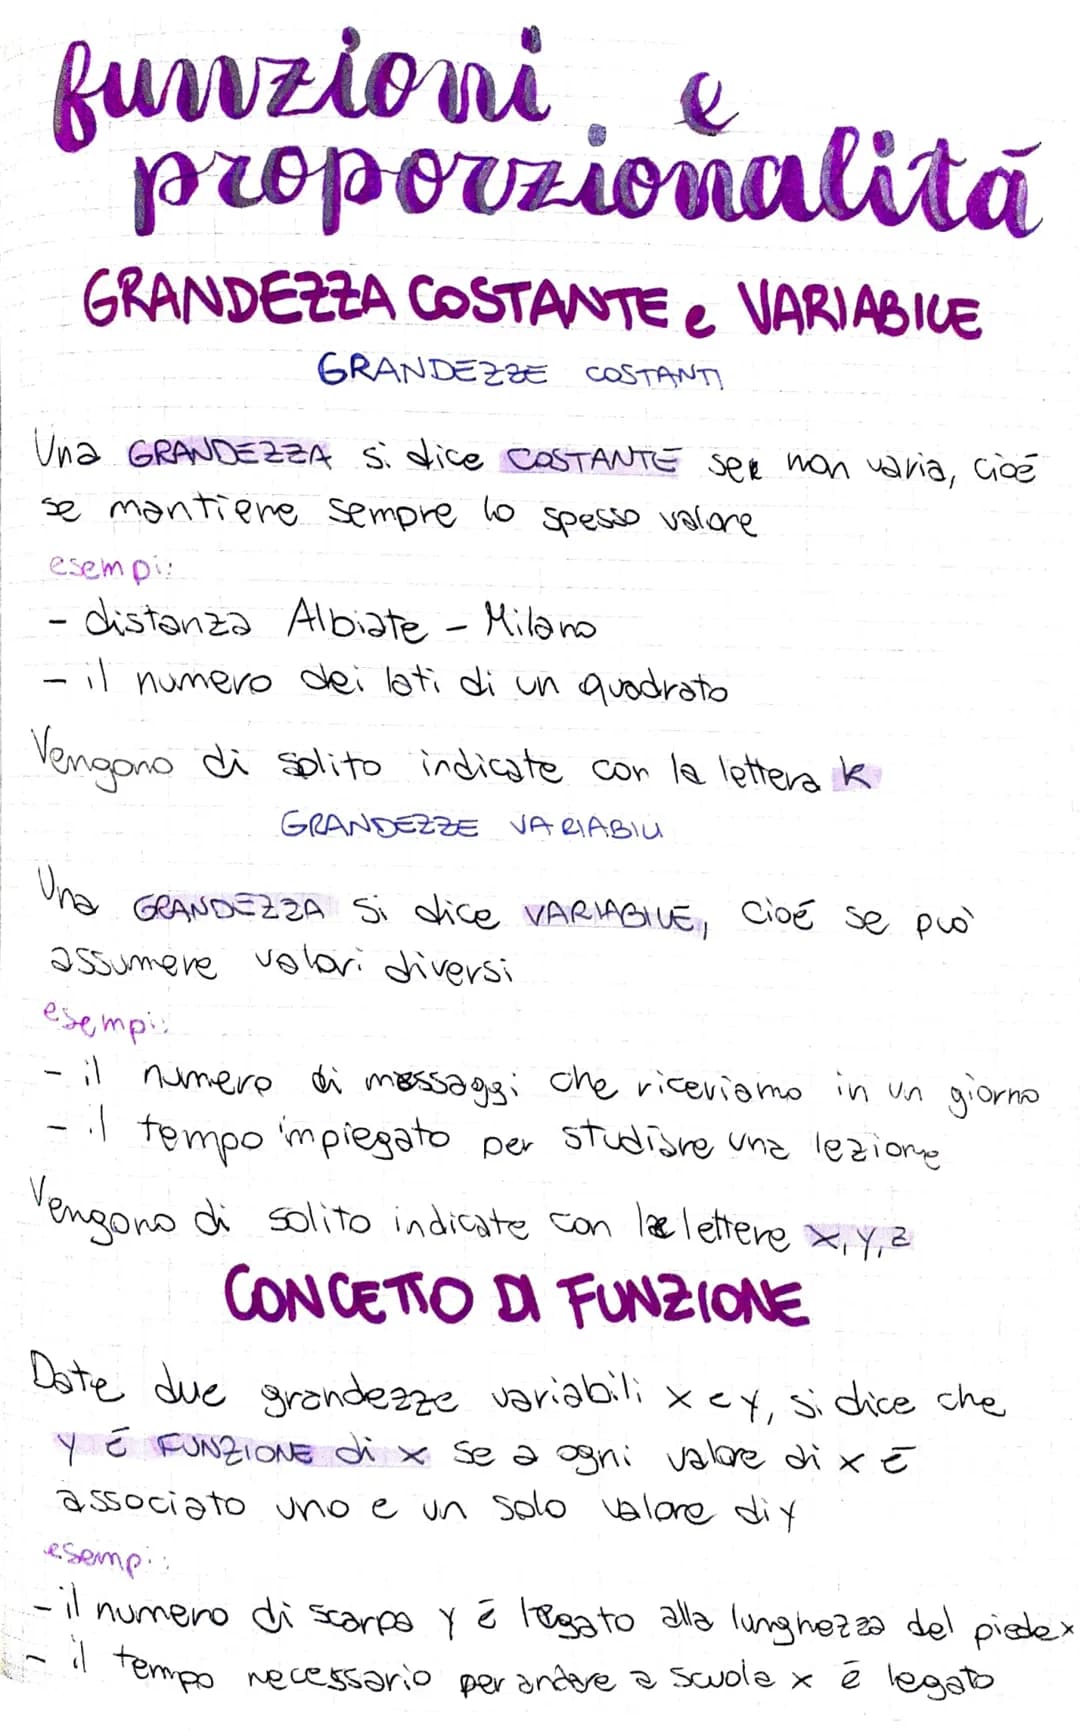 funzioni e
proporzionalitá
GRANDEZZA COSTANTE e VARIABILE
GRANDEZZE COSTANTI
Una GRANDEZZA si dice COSTANTE se non varia, cioé
se mantiene sempre lo spesso valore
esempi:
- distanza Albiate - Milano
- il numero dei lati di un quadrato
Vengono di solito indicate con la lettera k
GRANDEZZE VARIABILI
Una GRANDEZZA si dice VARIABILE, cioé se può
assumere valori diversi
esempi:
- il numero di messaggi che riceviamo in un giorno
- il tempo impiegato per studiare una lezione
Vengono di solito indicate con le lettere x, y, z
CONCETTO DI FUNZIONE
Date due grandezze variabili x e y, si dice che
y é FUNZIONE di x se a ogni valore di x é
associato uno e un solo valore di y
esempi:
- il numero di scarpa y é legato alla lunghezza del piede x
- il tempo necessario per andare a scuola x é legato